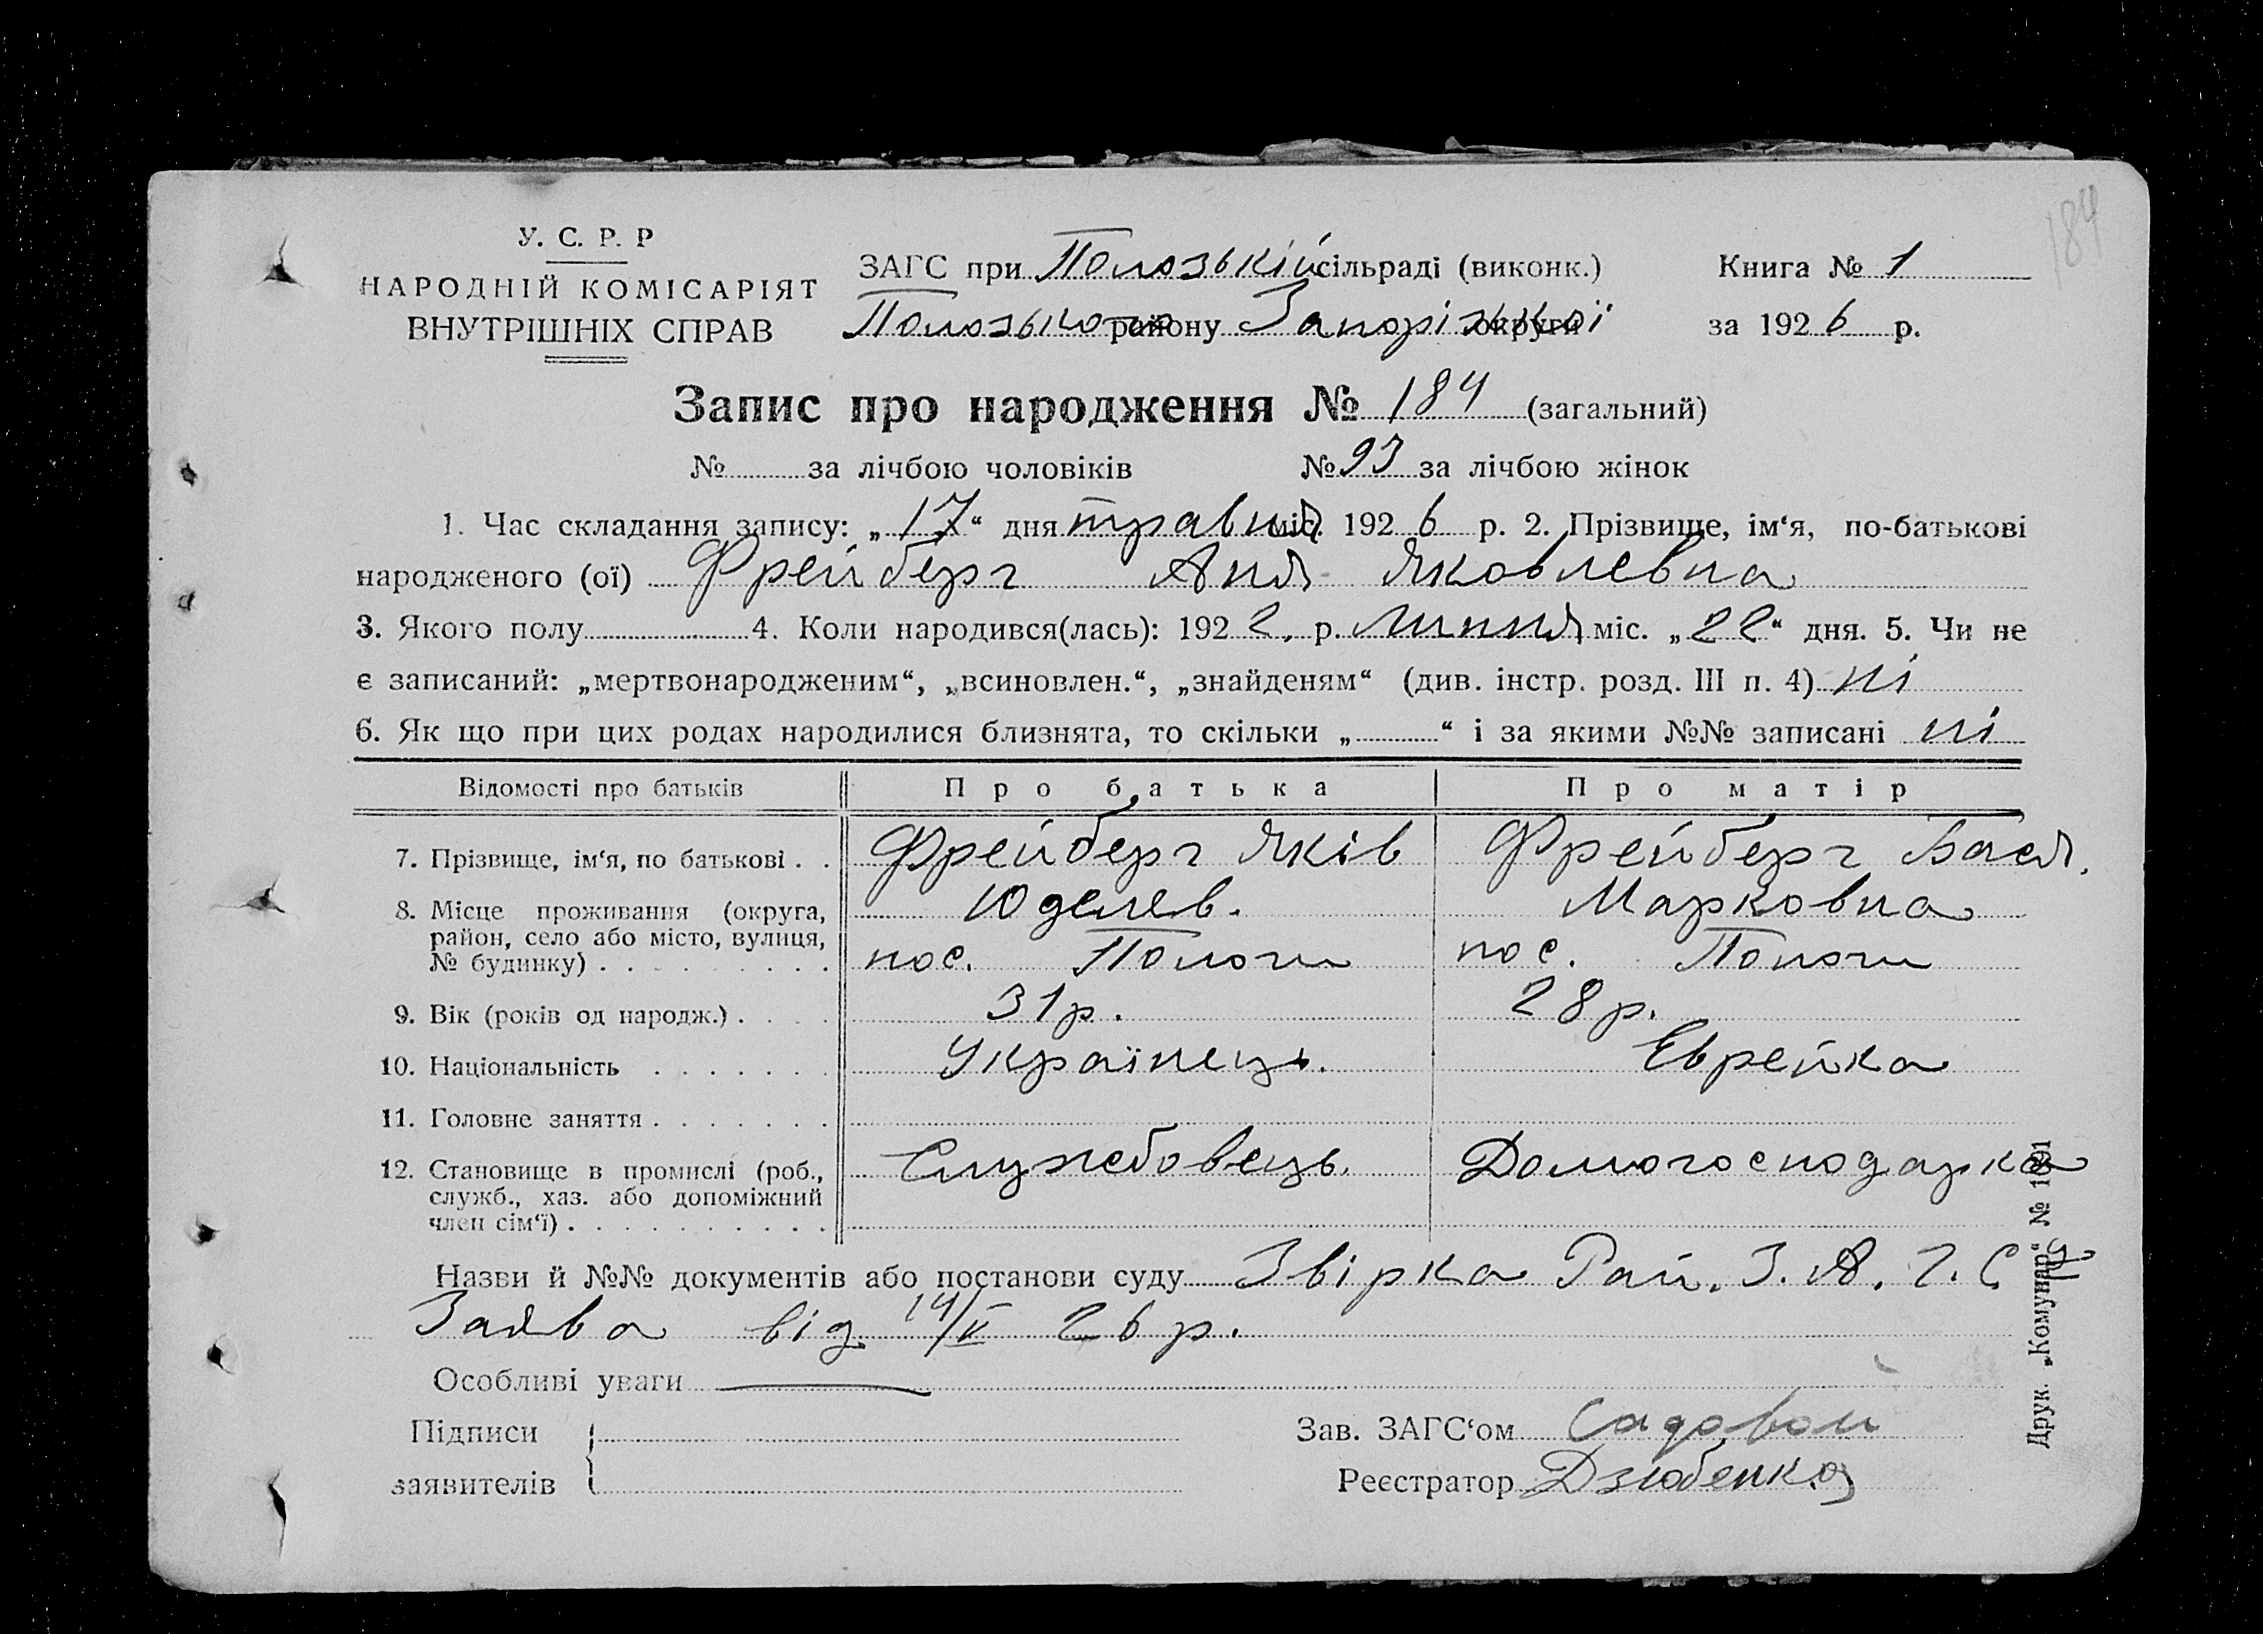 184
У. С. Р. Р
НАРОДНІЙ КОМІСАРІЯТ
ВНУТРІШНІХ СПРАВ
ЗАГС при Положській сільраді (виконк.)
Положського району Запорізької округи
Книга № 1
за 1926 р.
Запис про народження № 184 (загальний)
№ за лічбою чоловіків № 93 за лічбою жінок
1. Час складання запису: „17“ дня травня міс. 1926 р. 2. Прізвище, ім‘я, по-батькові
народженого (ої) Фрейберг Аня Яковлевна
3. Якого полу 4. Коли народився(лась): 1922. р. липня міс. „22“ дня. 5. Чи не
є записаний: „мертвонародженим“, „всиновлен.“, „знайденям“ (див. інстр. розд. III п. 4) ні
6. Як що при цих родах народилися близнята, то скільки „ “ і за якими №№ записані ні
Відомості про батьків Про батька Про матір
7. Прізвище, ім‘я, по батькові . . Фрейберг Яків Фрейберг Бася.
Юделев. Марковна
8. Місце проживання (округа,
район, село або місто, вулиця,
№ будинку) . . . . . . . . . пос. Пологи пос. Пологи
9. Вік (років од народж.) . . . . 31 р. 28 р.
10. Національність . . . . . . . Українець. Еврейка
11. Головне заняття . . . . . . .
12. Становище в промислі (роб.,
служб., хаз. або допоміжний
член сім‘ї) . . . . . . . . . . Службовець. Домогосподарка
Назви й №№ документів або постанови суду Звірка Рай. З. А. Г. С
Заява від 14/V 26 р.
Особливі уваги
Підписи
заявителів
Зав. ЗАГС‘ом Садовой
Реєстратор Дзюбенко
Друк. „Комунар“ №